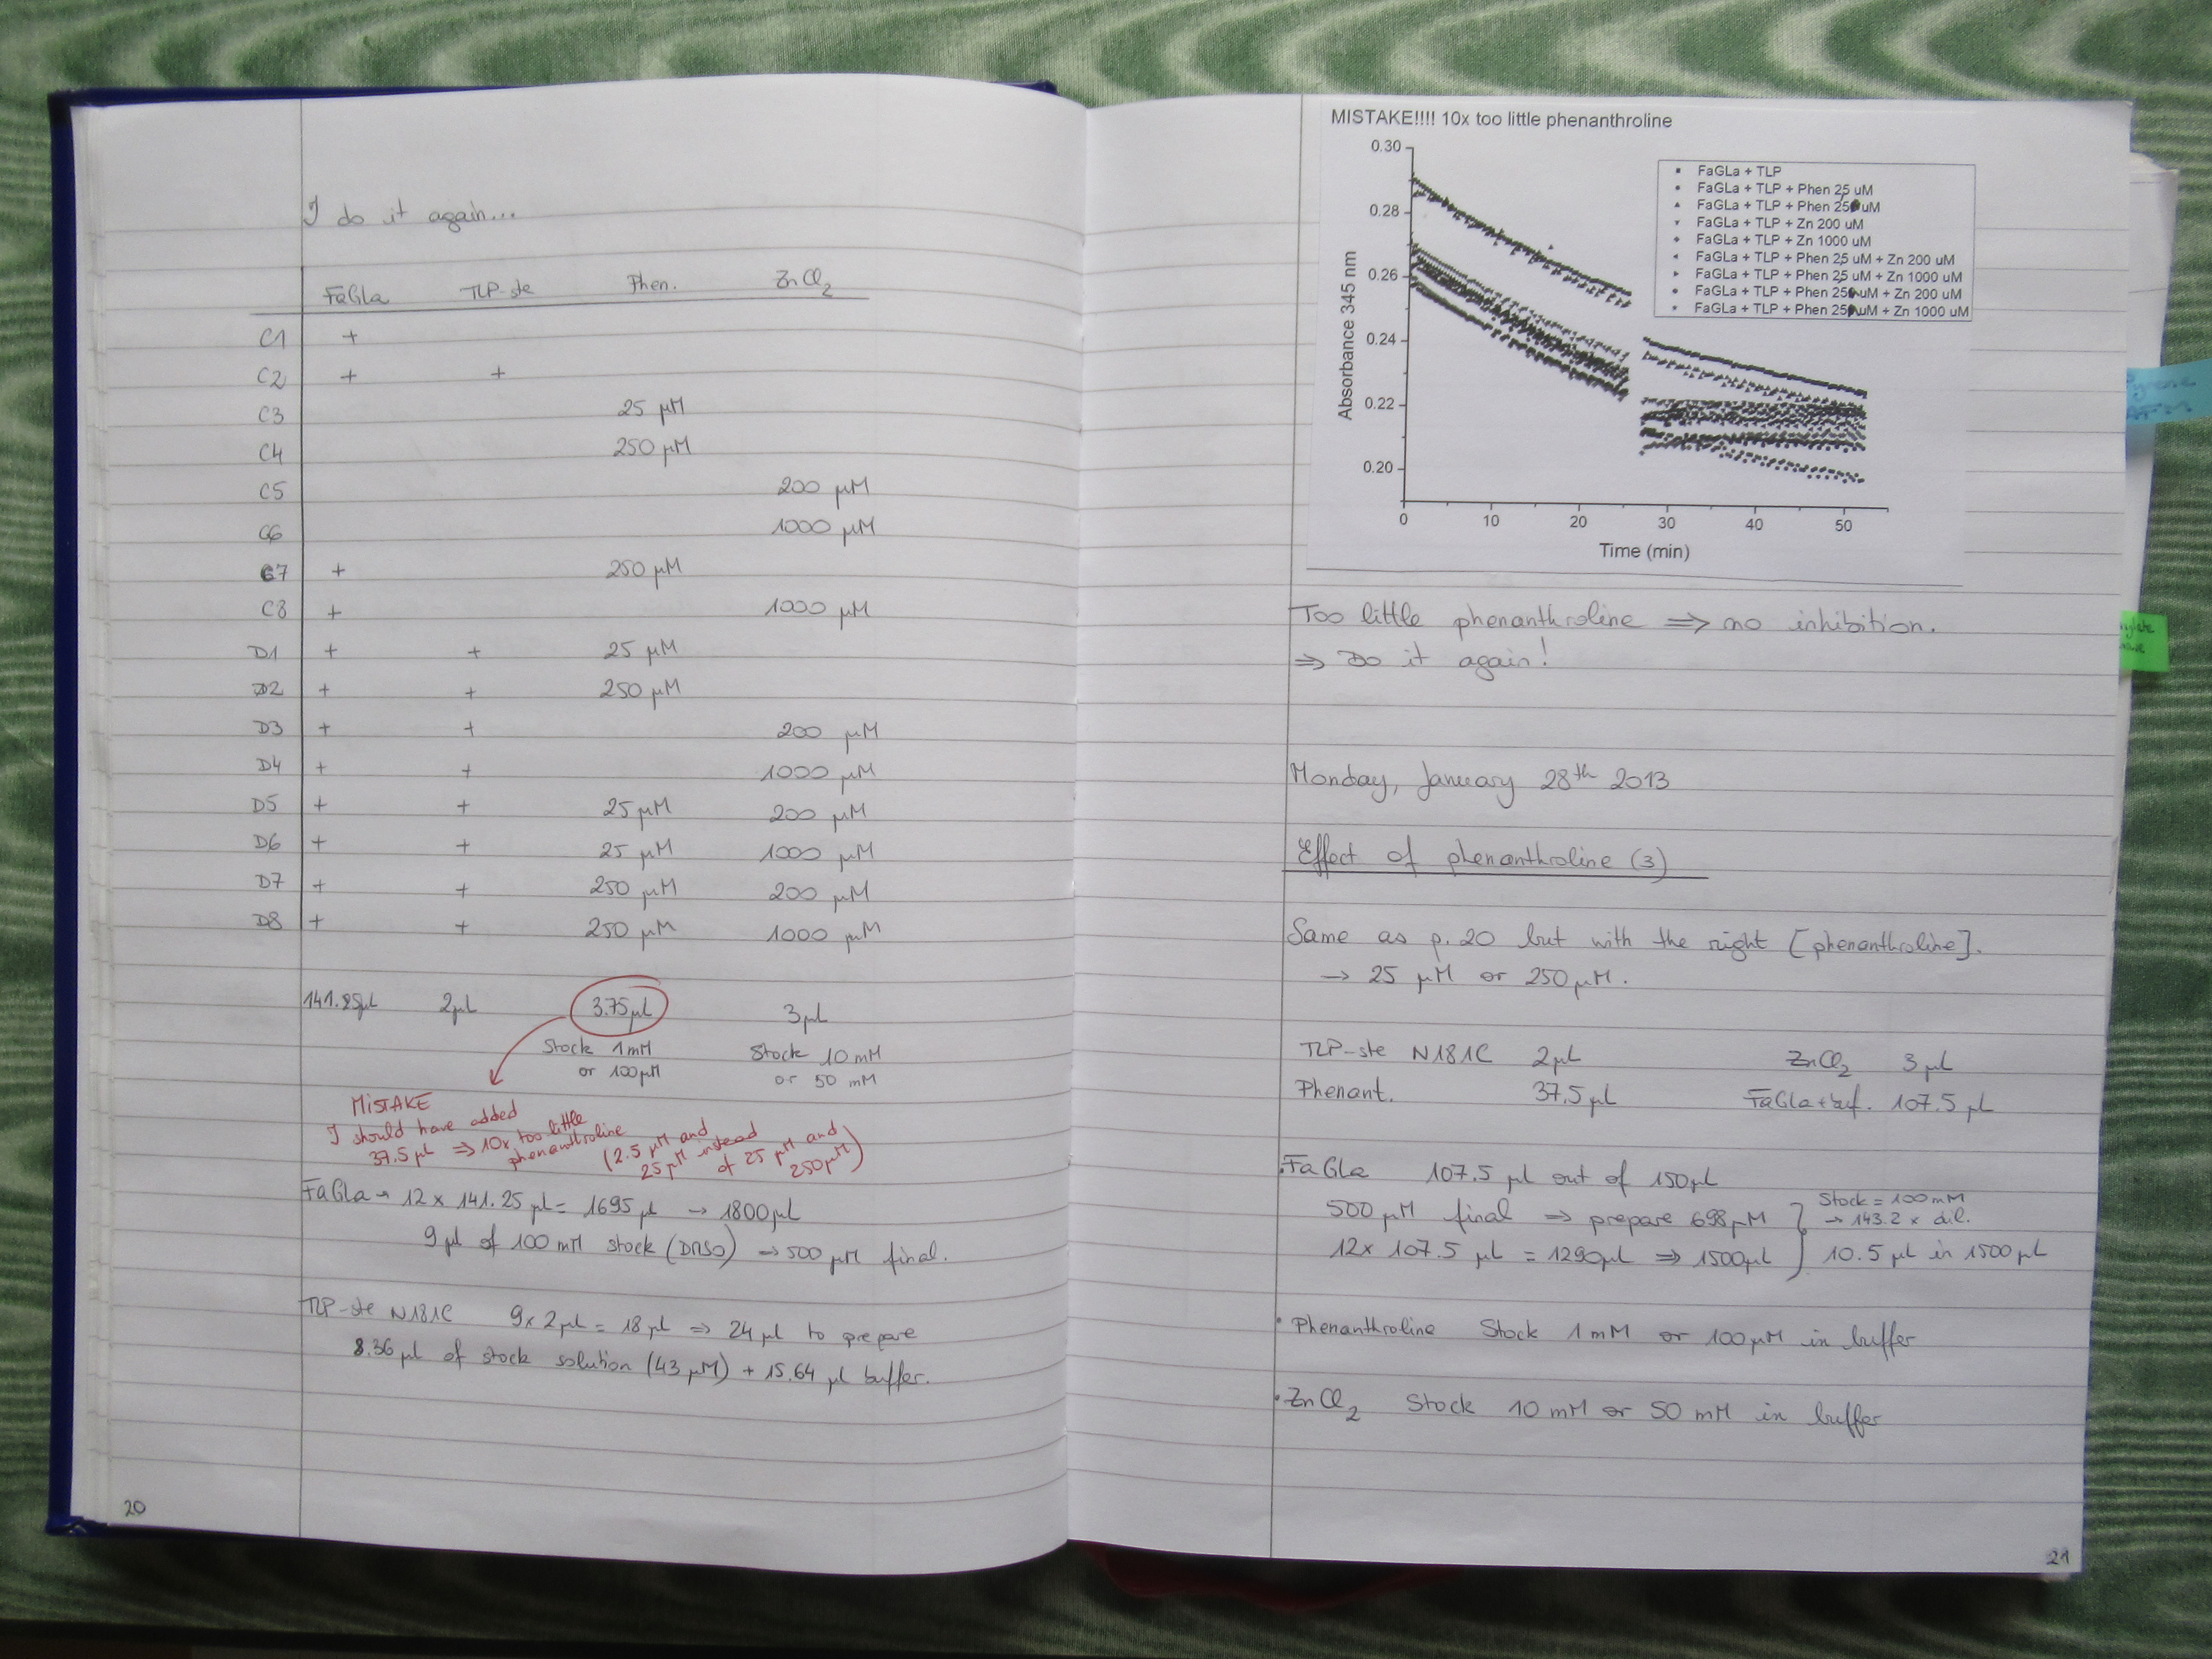 I do it again...
FaGla TLP-ste Phen. ZnCl2
C1 +
C2 + +
C3 25 µM
C4 250 µM
C5 200 µM
C6 1000 µM
C7 + 250 µM
C8 + 1000 µM
D1 + + 25 µM
D2 + + 250 µM
D3 + + 200 µM
D4 + + 1000 µM
D5 + + 25 µM 200 µM
D6 + + 25 µM 1000 µM
D7 + + 250 µM 200 µM
D8 + + 250 µM 1000 µM
141.25µL 2µL 3.75µL 3µL
Stock 1mM Stock 10 mM
or 100µM or 50 mM
MISTAKE
I should have added
37.5 µL ⇒ 10x too little
phenanthroline
(2.5 µM and
25 µM instead
of 25 µM and
250µM)
FaGla → 12 x 141.25 µL = 1695 µL → 1800µL
9µL of 100 mM stock (DMSO) → 500 µM final.
TLP-ste N181C 9x 2µL = 18µL ⇒ 24µL to prepare
8.36 µL of stock solution (43 µM) + 15.64 µL buffer.
20
MISTAKE!!!! 10x too little phenanthroline
0.30
0.28
0.26
0.24
0.22
0.20
Absorbance 345 nm
FaGLa + TLP
FaGLa + TLP + Phen 25 uM
FaGLa + TLP + Phen 250 uM
FaGLa + TLP + Zn 200 uM
FaGLa + TLP + Zn 1000 uM
FaGLa + TLP + Phen 25 uM + Zn 200 uM
FaGLa + TLP + Phen 25 uM + Zn 1000 uM
FaGLa + TLP + Phen 250 uM + Zn 200 uM
FaGLa + TLP + Phen 250 uM + Zn 1000 uM
0 10 20 30 40 50
Time (min)
Too little phenanthroline ⇒ no inhibition.
⇒ Do it again!
Monday, January 28th 2013
Effect of phenanthroline (3)
Same as p.20 but with the right [phenanthroline].
→ 25 µM or 250µM.
TLP-ste N181C 2µL ZnCl2 3 µL
Phenant. 37.5 µL FaGla+buf. 107.5 µL
FaGla 107.5 µL out of 150µL
500 µM final ⇒ prepare 698µM
12x 107.5 µL = 1290µL ⇒ 1500µL
Stock = 100mM
→ 143.2 x dil.
10.5 µL in 1500µL
• Phenanthroline Stock 1 mM or 100µM in buffer
• ZnCl2 Stock 10 mM or 50 mM in buffer
21